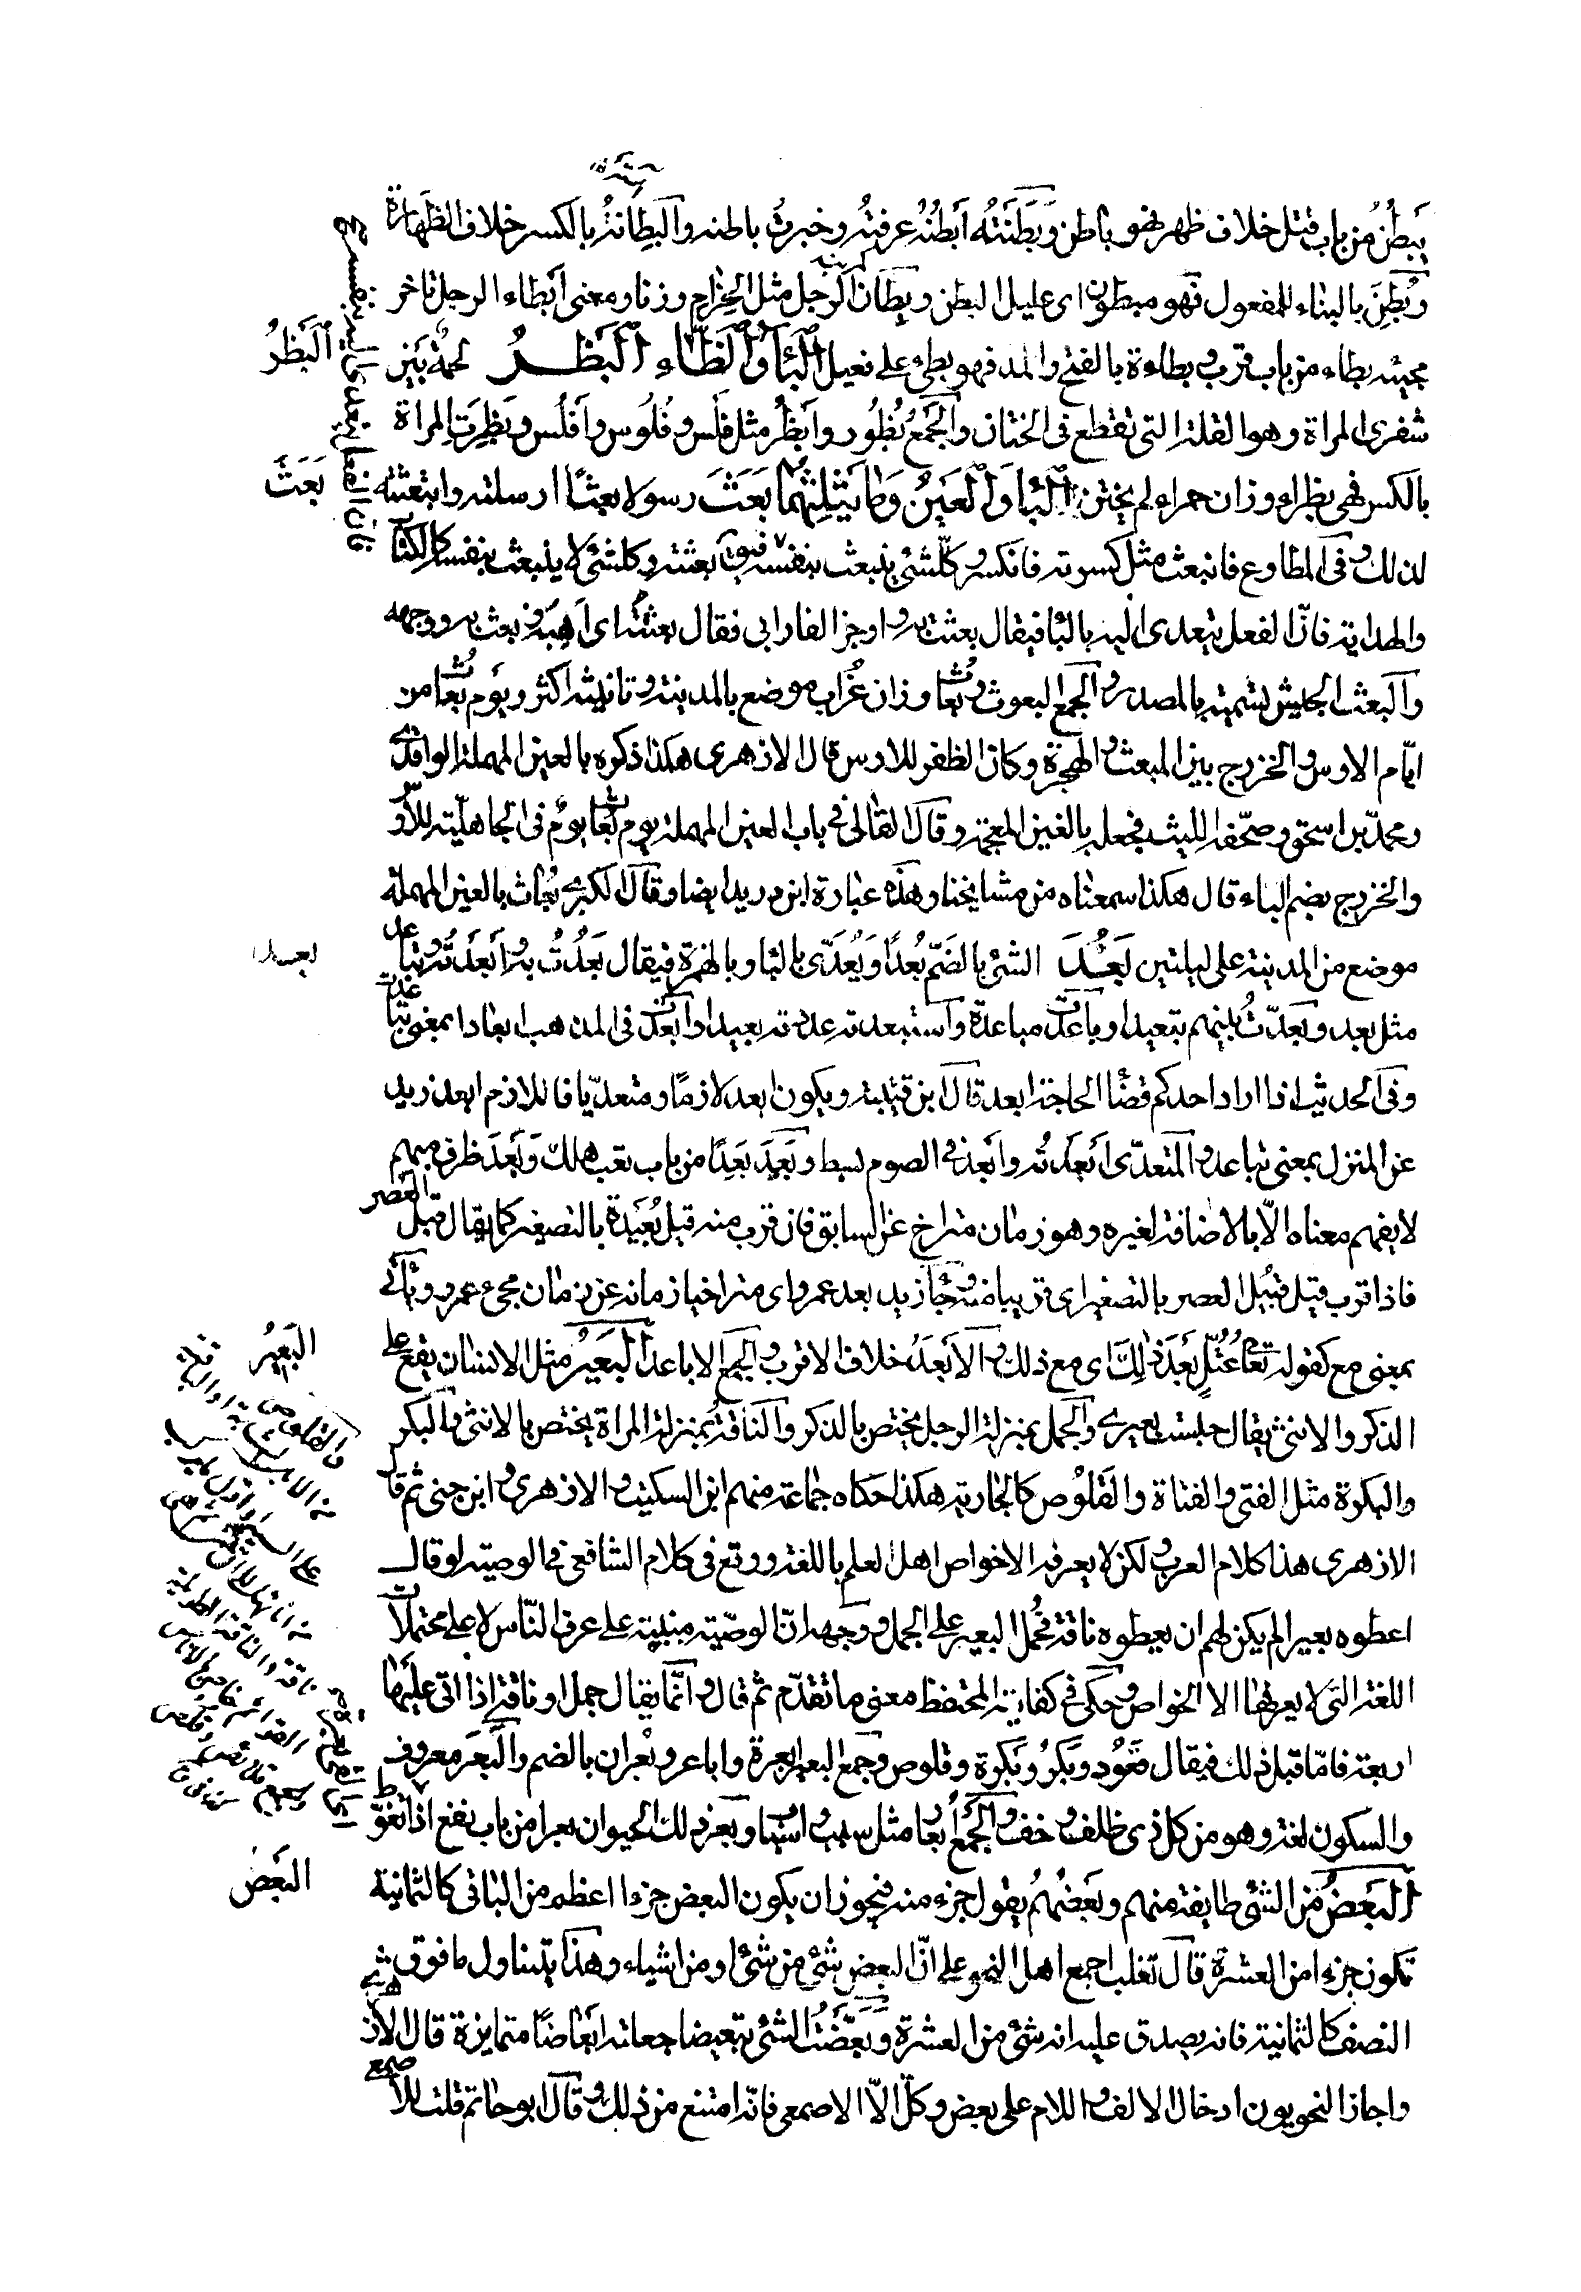 يبطُنُ من باب قتل خلاف ظهر فهو باطن وبَطَنتُه أبطُنُه عرفتُه وخبرتُ باطنه والبِطانةُ بالكسر خلاف الظهارة
وبُطِنَ بالبناء للمفعول فهو مبطون اى عليل البطن وبِطان الرحل مثل الحِزام وزنا ومعنى أبطاء الرجل تاخر
مجيئه بطاء من باب قرب وبطاءة بالفتح والمد فهو بطئ على فعيل البَاءُ والظَاء البَظرُ لحمة بَين
شفرى المراة وهو القلفة التى تقطع فى الختان والجَمعُ بُظُور وابظُر مثل فَلَس وفُلُوس وأفلُس وبَظِرَت المراة
البَظرُ
بالكسر فهى بظراء وزان حمراء لم يختن البَاء والعَين وَمَا يَثلِثهُما بَعَثَ رسولا بعثًا ارسلته وابتعثته
بَعَثَ
لذلك وفى المطاوع فانبعث مثل كسرته فانكسر وكل شئ ينبعث بنفسه فيق بعثته وكل شئ لا ينبعث بنفسه كالكتاب
والهداية فانّ الفعل يتعدى اليه بالبا فيقال بعثت به واوجز الفارابى فقال بعثتُه اى أهبّه وبعث به وجهه
والبعث الجيش تسمية بالمصدر والجمع البعوث وبُعاث وزان غُراب موضع بالمدينة وتانيثه اكثر ويوم بُعاث من
ايّام الاوس والخزرج بين المبعث والهجرة وكان الظفر للاوس قال الازهرى هكذا ذكره بالعين المهملة الواقدى
ومحمّد بن اسحق وصحّفه الليث فجعله بالغين المعجمة وقال القالى فى باب العين المهملة يوم بُعاث يوم فى الجاهليّة للأوس
والخزرج بضم الباء قال هكذا سمعناه من مشايخنا وهذه عبارة ابن دريد ايضا وقال البكرى بُعاث بالعين المهملة
موضع من المدينة على ليلتين بَعُدَ الشئ بالضَمّ بُعدًا ويُعَدّى بالبا وبالهمزة فيقال بَعُدتُ به وأبعَدتُه وتباعد
بعد
مثل بعد وبَعّدتُ بينهم تبعيدا وباعدت مباعدة واستبعدته عددته بعيدا وابعدت فى المذهب ابعادا بمعنى تباعدت
وفى الحديث اذا اراد احدكم قضا الحاجة ابعد قال ابن قتيبة ويكون ابعد لازمًا ومتعدّيا فاللازم ابعد زيد
عن المنزل بمعنى تباعد والمتعدّى أبعَدتُه وأبعَد فى الصوم شط وبَعِدَ بَعَدًا من باب تعب هلك وبَعدَ ظرف مبهم
لا يفهم معناه الّا بالاضافة لغيره وهو زمان متراخ عن السابق فان قرب منه قيل بُعَيدة بالتصغير كما يقال قبل العصر
فاذا قرب قيل قُبَيل العصر بالتصغير اى قريبا منه وجَاء زيد بعد عمرو اى متراخيا زمانه عن زمان مجىء عمرو وتاتى
بمعنى مع كقوله تعالى عُتُلٍّ بَعدَ ذلك اى مع ذلك والأبعَدُ خلاف الاقرب والجمع الاباعد البَعِيرُ مثل الانسان يقع على
البَعِيرُ
الذكر والانثى يقال حلبت بعيرى والجمل بمنزلة الرجل يختص بالذكر والناقة بمنزلة المراة يختص بالانثى والبكر
والبكرة مثل الفتى والفتاة والقَلُوص كالجارية هكذا حكاه جماعة منهم ابن السكيت والازهرى وابن جنى ثم قال
الازهرى هذا كلام العرب ولكن لا يعرفه الا خواص اهل العلم باللغة ووقع فى كلام الشافعى فى الوصية لو قال
اعطوه بعيرا لم يكن لهم ان يعطوه ناقة فحُمل البعير على الجمل ووجهه انّ الوصيّة مبنيّة على عرف النّاس لا على محتملات
اللغة التى لا يعرفها الا الخواص وحكى فى كفاية المتحفظ معنى ما تقدّم ثم قال وانّما يقال جمل او ناقة اذا اتى عليها
اربعة فامّا قبل ذلك فيقال قَعُود وبَكر وبَكرة وقلوص وجمع البعير ابعرة واباعر وبُعران بالضم والبَعَر معروف
والسكون لغة وهو من كل ذى ظلف وخف والجَمعُ أبعار مثل سبب واسباب وبعر ذلك الحيوان بعرا من باب نفع اذا تغوّط
البَعض
البَعضُ من الشئ طايفة منهم وبَعضُهم يقول جزء منه فيجوز ان يكون البعض جزءا اعظم من الباقى كالثمانية
تكون جزءا من العشرة قال ثعلب اجمع اهل النحو على انّ البعض شئ من شئ او من اشياء وهذا يتناول ما فوق
النصف كالثمانية فانه يصدق عليه انه شئ من العشرة وبَعَّضتُ الشئ تبعيضا جعلته ابعاضًا متمايزة قال الازهرى
واجاز النحويون ادخال الالف واللام على بعض وكلّ الّا الاصمعى فانّه امتنع من ذلك وقال ابو حاتم قلت للاصمعى